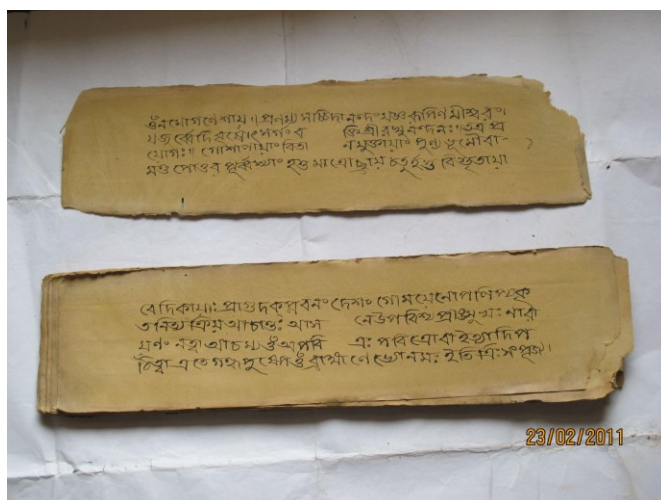 ওঁ নমো গণেশায়॥ প্রনম্য সচ্চিদানন্দং যজ্ঞরূপিণমীশ্বরং।
যজুর্ব্বেদিবৃষোৎসর্গং ব ক্তি শ্রীরঘুনন্দনঃ॥ তত্র প্র
য়োগঃ॥ গোশালায়াং বিতা
মণ্ডপোত্তর পূর্ব্বস্যাং হস্তমাত্রোচ্ছ্রায় চতুর্হস্ত বিস্তৃতায়া
বেদিকায়াঃ প্রাগুদকপ্লবনং দেশং গোময়েনোপলিপ্য কৃ
তনিত্যক্রিয় আচান্তঃ আস নে উপবিশ্য প্রাঙ্মুখঃ নারা
য়ণং নত্বা আচম্য ওঁ অপবি ত্রঃ পবিত্রোবা ইত্যাদি প
ঠিত্বা এতে গন্ধপুষ্পে ওঁ ব্রাহ্মণেভ্যো নমঃ ইতি ত্রিঃ সংপূজ্য।
23/02/2011